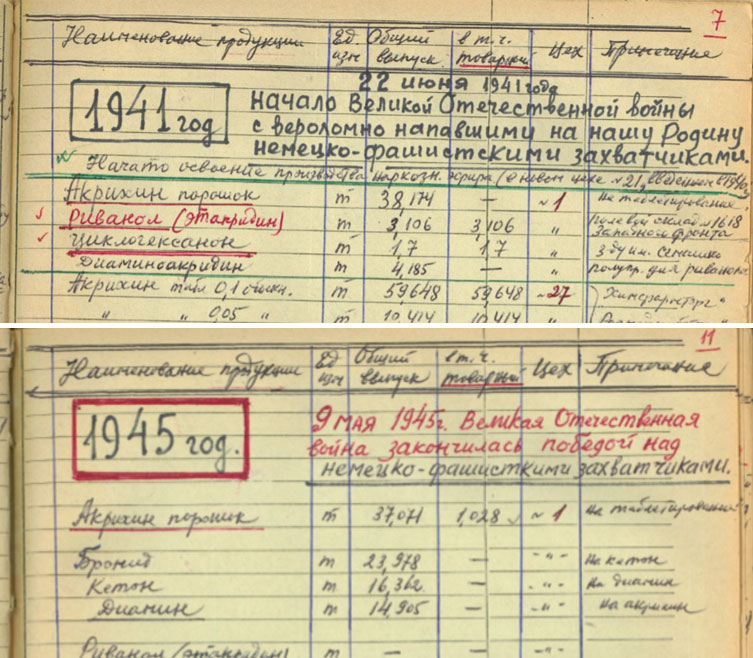 7
Наименование продукции Ед. изм Общий выпуск в т.ч. товарный Цех Примечание
22 июня 1941 года
1941 год
начало Великой Отечественной войны
с вероломно напавшими на нашу Родину
немецко-фашистскими захватчиками.
Начато освоение производства наркозн. эфира (в новом цехе №21, введенном в 1940г.
Акрихин порошок т 38,174 — №1 На таблетирование
Риванол (этакридин) т 3,106 3,106 " Полевой склад №1618 Западного фронта
Циклогексанон т 1,7 1,7 " З-ду им. Семашко
Диаминоакридин т 4,185 — " полупр. для риванола
Акрихин табл 0,1 т 59,648 59,648 №27
" " 0,05 "
11
Наименование продукции Ед изм Общий выпуск в т.ч. товарной Цех Примечание
1945 год.
9 мая 1945г. Великая Отечественная
война закончилась победой над
немецко-фашисткими захватчиками.
Акрихин порошок т 37,071 1,028 №1 На таблетирование
Бромид т 23,978 — -"- На кетон
Кетон т 16,362 — -"- На диамин
Диамин т 14,905 — -"- На акрихин
Риванол (этакридин) т — — -"-